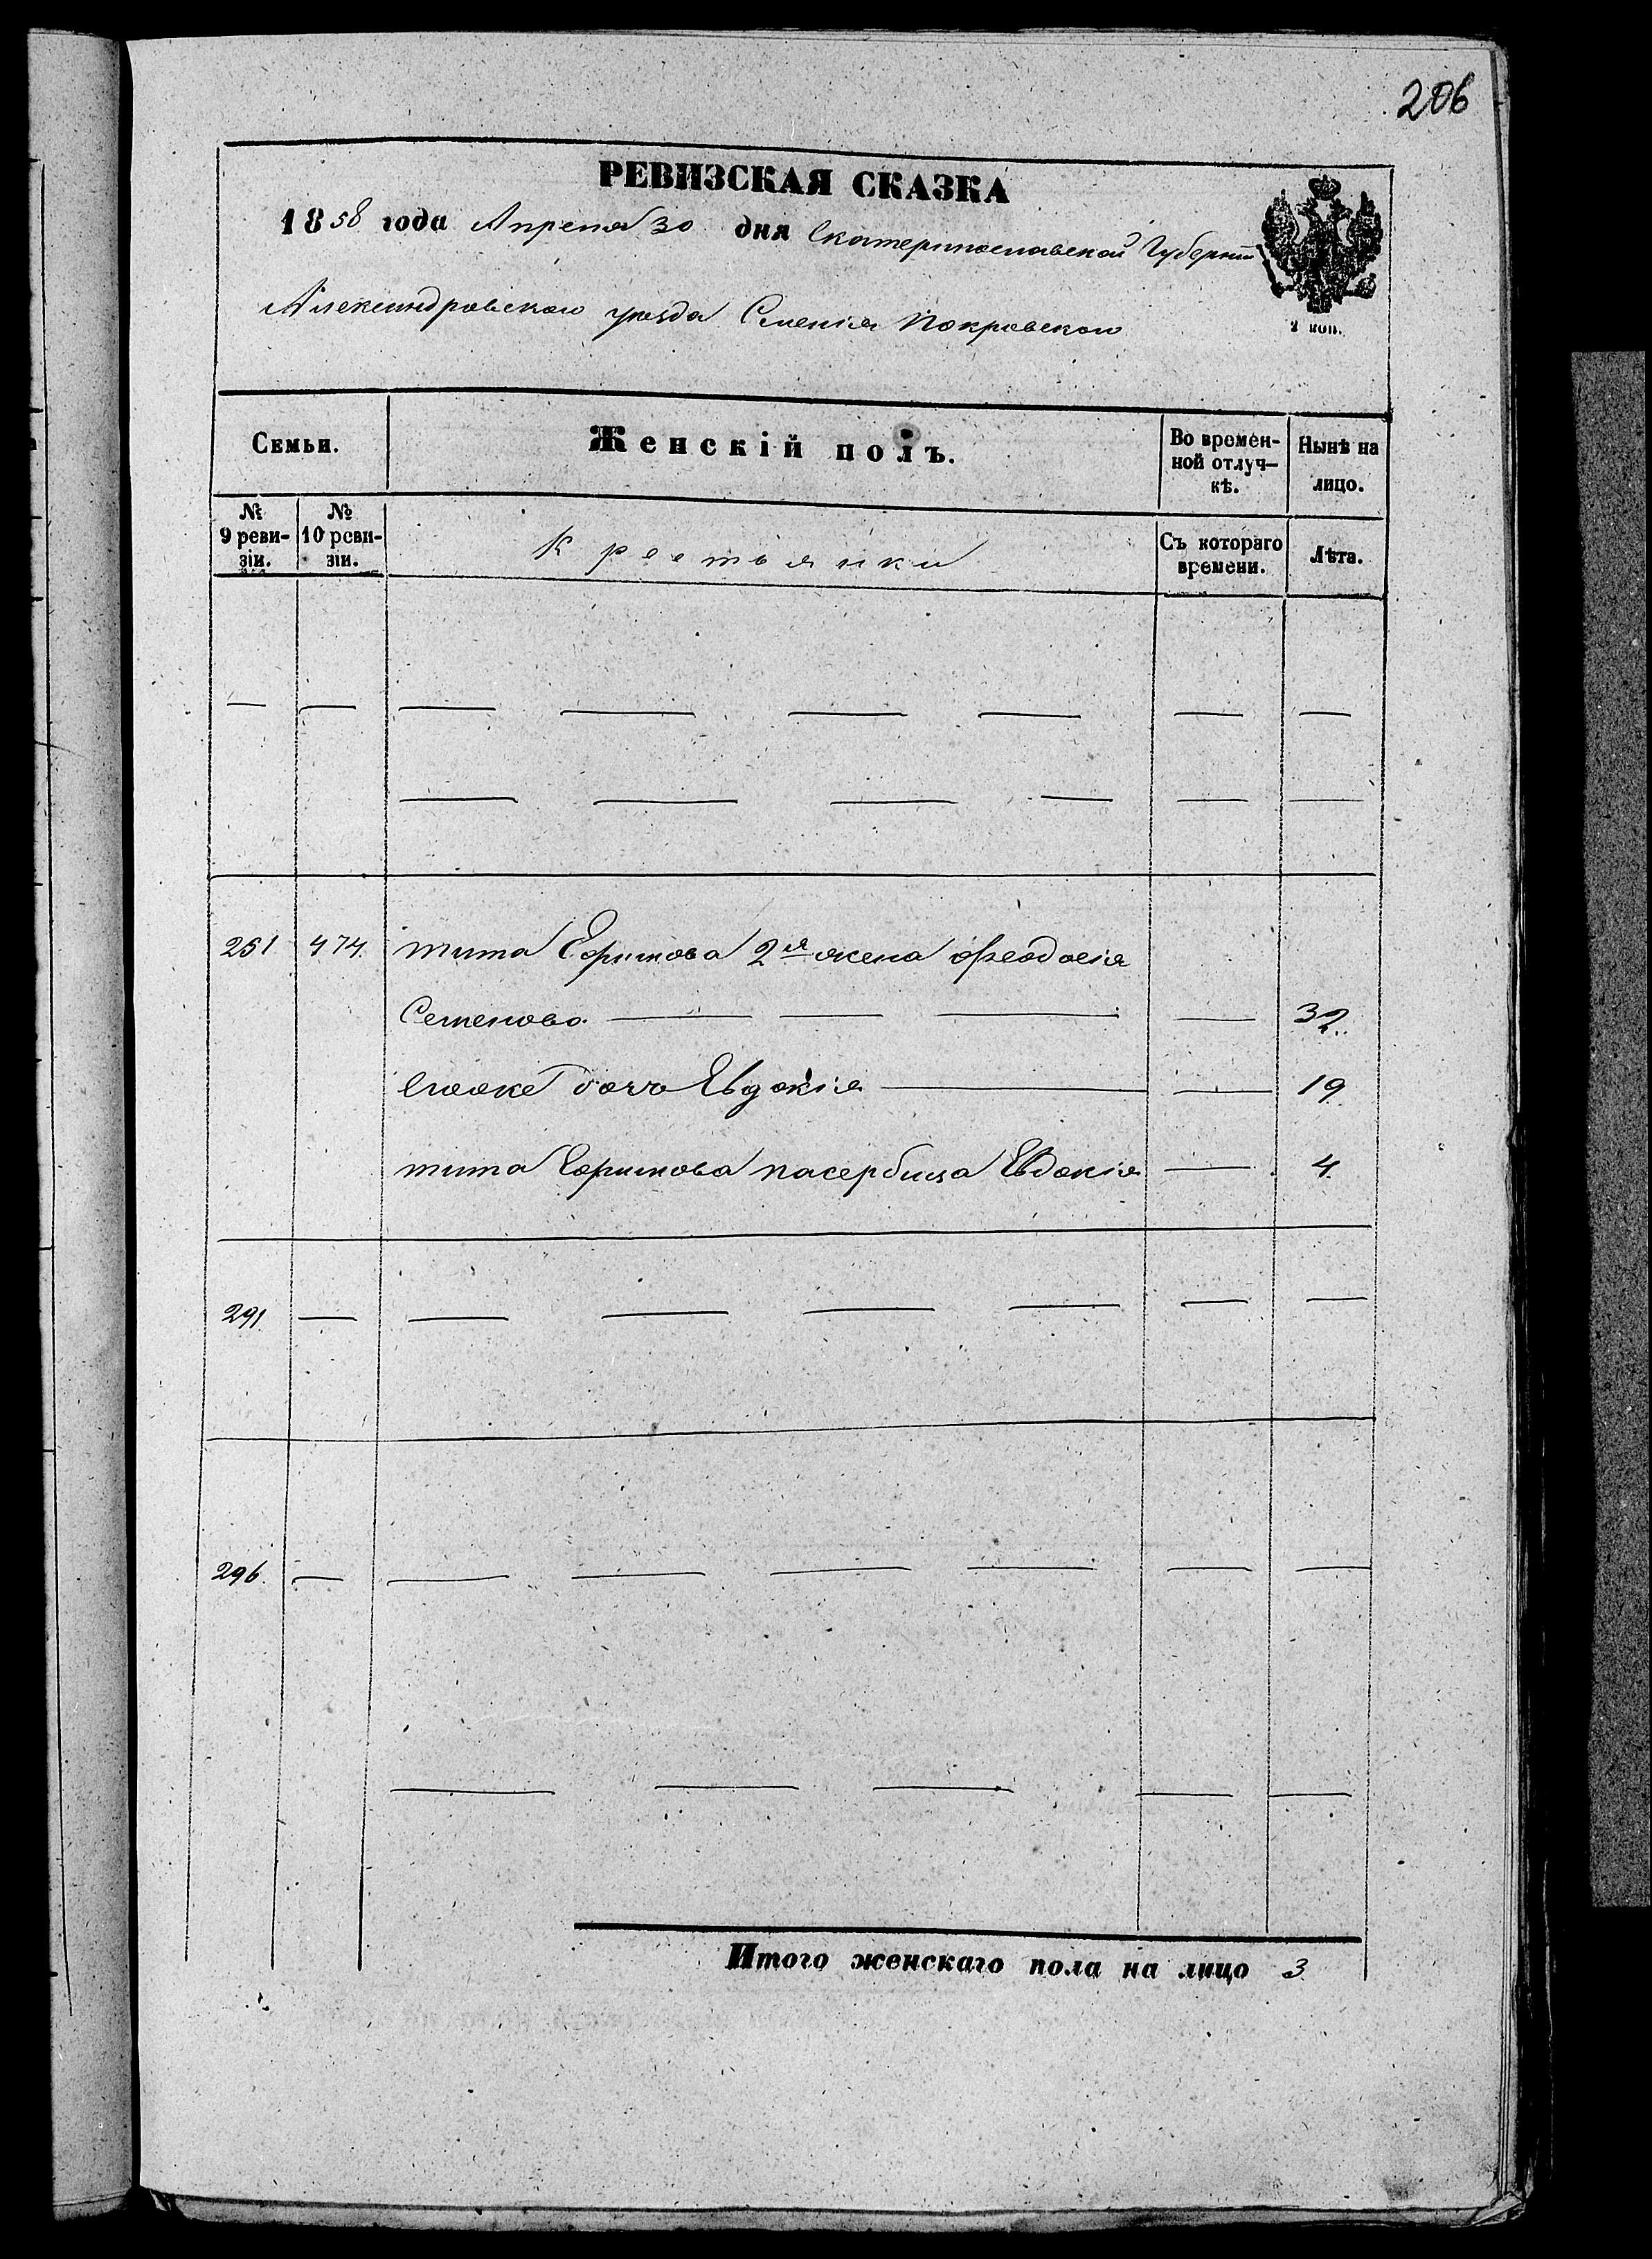 206
РЕВИЗСКАЯ СКАЗКА
1858 года Апреля 30 дня Екатеринославской Губерніи
Александровскаго уезда Селенія Покровскаго
2 коп.
Семьи. Женскій полъ. Во времен-ной отлуч-кѣ. Нынѣ на лицо.
№ 9 реви-зіи. № 10 реви-зіи. Крестьянки Съ котораго времени. Лѣта.
251 474. Тита Ефимова 2я жена Феодосія
Семенова 32.
Егоже дочь Евдокія 19.
Тита Ефимова пасербица Евдокія 4.
291
296.
Итого женскаго пола на лицо 3